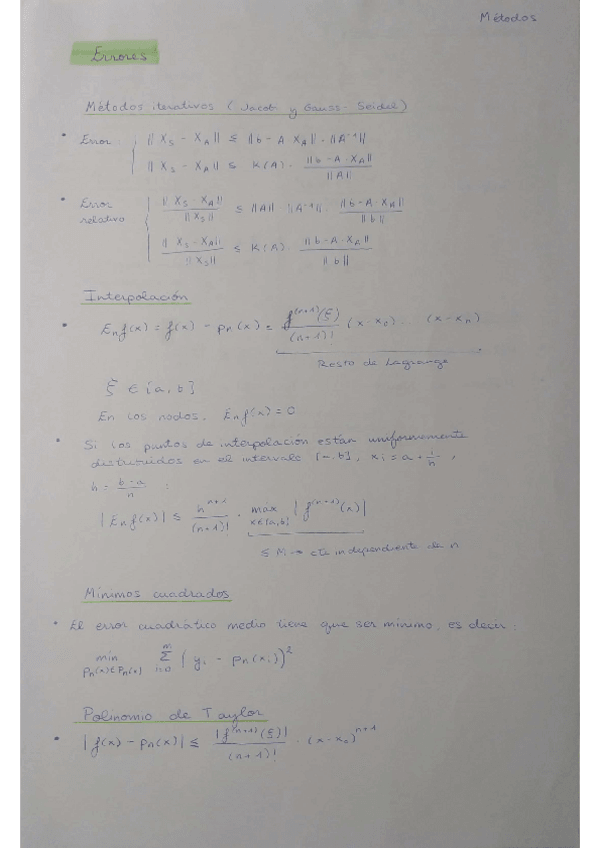 Métodos
Errores
Métodos iterativos (Jacobi y Gauss-Seidel)
• Error { ||Xs - XA|| ≤ ||b - A·XA||·||A⁻¹||
||Xs - XA|| ≤ K(A)· ||b - A·XA|| / ||A||
• Error relativo { ||Xs - XA|| / ||Xs|| ≤ ||A||·||A⁻¹||· ||b - A·XA|| / ||b||
||Xs - XA|| / ||Xs|| ≤ K(A)· ||b - A·XA|| / ||b||
Interpolación
• Enf(x) = f(x) - pn(x) = f⁽ⁿ⁺¹⁾(ξ) / (n+1)! (x-x₀)... (x-xn)
Resto de Lagrange
ξ ∈ [a,b]
En los nodos, Enf(x) = 0
• Si los puntos de interpolación están uniformemente
distribuidos en el intervalo [a,b], xi = a + i/n,
h = b-a / n :
|Enf(x)| ≤ hⁿ⁺¹ / (n+1)! · máx x∈[a,b] |f⁽ⁿ⁺¹⁾(x)|
≤ M → cte independiente de n
Mínimos cuadrados
• El error cuadrático medio tiene que ser mínimo, es decir:
min pn(x)∈Pn(x) Σ (yi - pn(xi))²
Polinomio de Taylor
• |f(x) - pn(x)| ≤ |f⁽ⁿ⁺¹⁾(ξ)| / (n+1)! · (x-x₀)ⁿ⁺¹